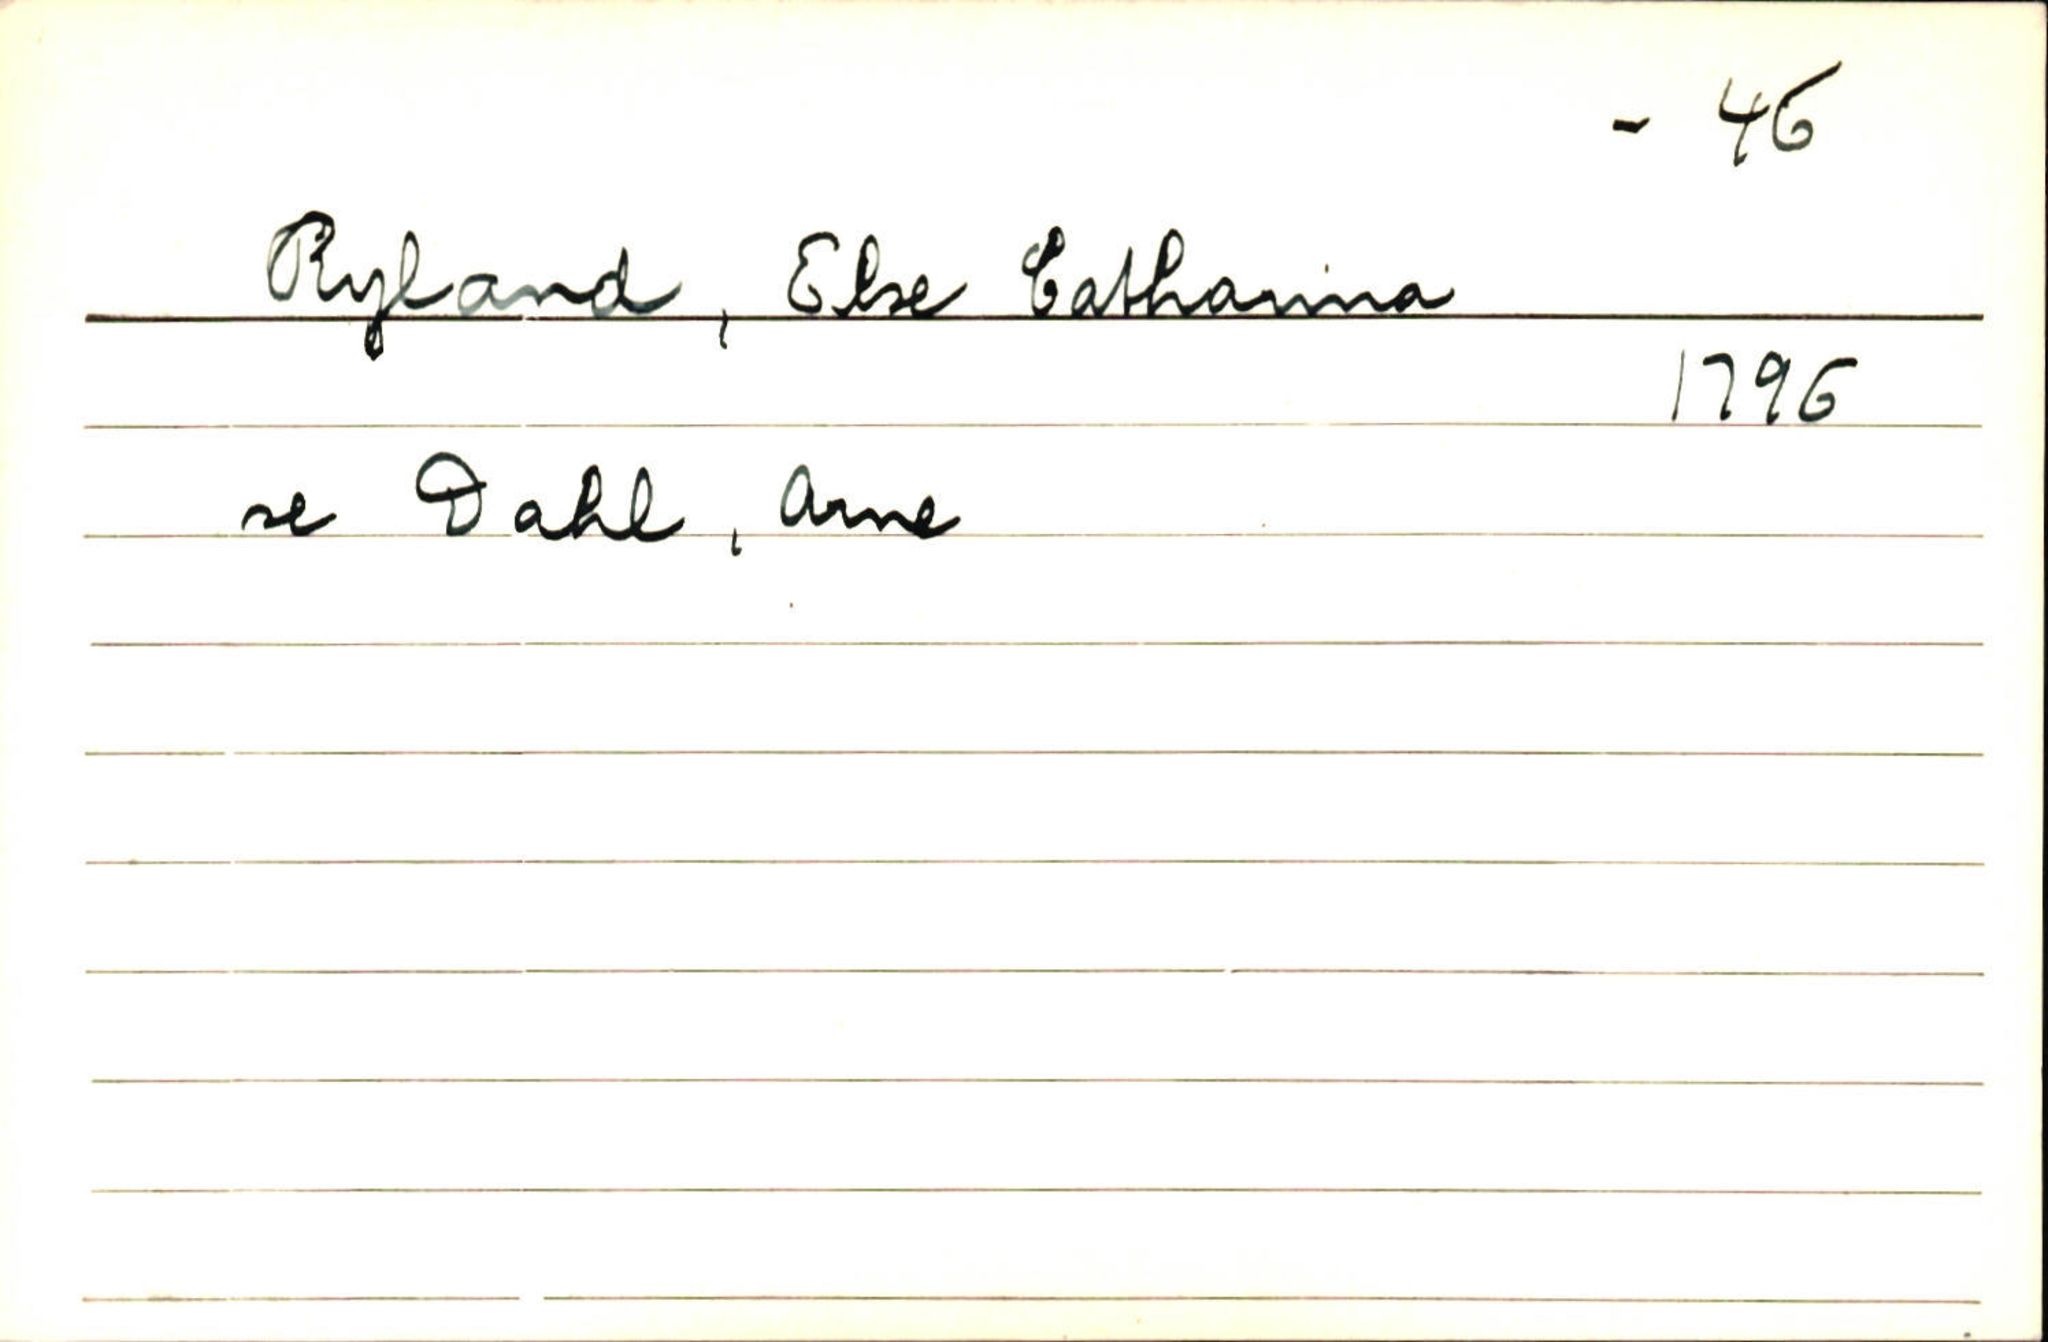 - 46
Ryland, Else Catharina
1796
se Dahl, Arne